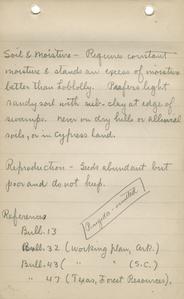 Soil & Moisture - Requires constant
moisture & stands an excess of moisture
better than Loblolly. Prefers light
sandy soil with sub-clay at edge of
swamps. Never on dry hills or alluvial
soils, or in Cypress land.
Reproduction - Seeds abundant but
poor and do not keep.
References
Bull. 13
Bull. 32 (Working Plan, Ark.)
Bull. 43 ( " " (S.C.)
" 47 (Texas, Forest Resources).